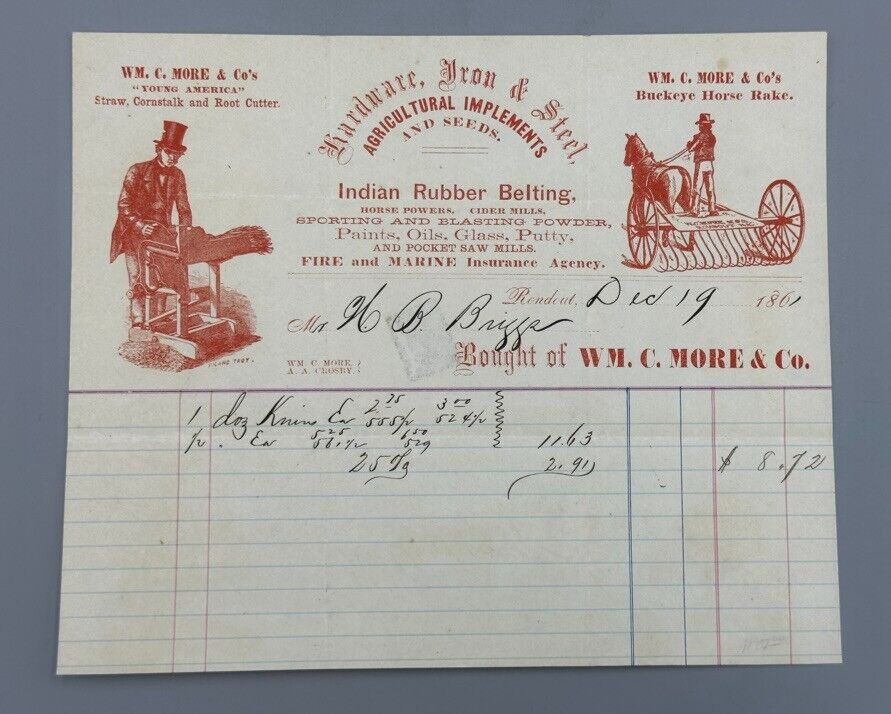 WM. C. MORE & Co's
"YOUNG AMERICA"
Straw, Cornstalk and Root Cutter.
Hardware, Iron & Steel,
AGRICULTURAL IMPLEMENTS
AND SEEDS.
WM. C. MORE & Co's
Buckeye Horse Rake.
Indian Rubber Belting,
HORSE POWERS, CIDER MILLS,
SPORTING AND BLASTING POWDER,
Paints, Oils, Glass, Putty,
AND POCKET SAW MILLS.
FIRE and MARINE Insurance Agency.
Rondout, Dec 19 1861
Mr H B. Briggs
WM. C. MORE,
A. A. CROSBY.
Bought of WM. C. MORE & Co.
2 75 3 00
1 doz Ea 555 524
5 25 6 50
Ea 529 11.63
25 2.91 $ 8.72